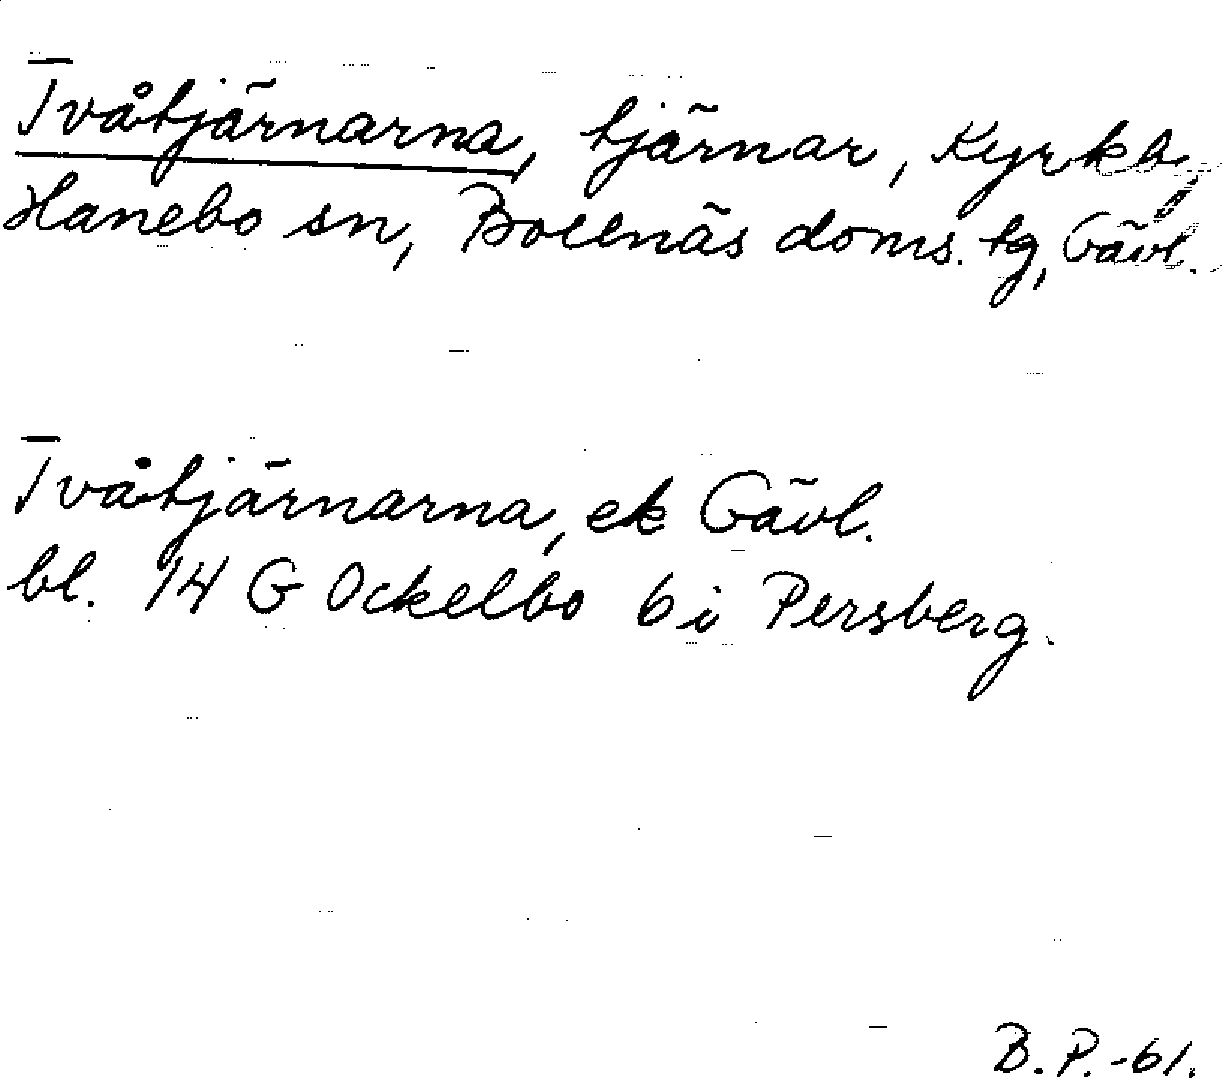 Tvåtjärnarna, tjärnar, Kyrkb,
Hanebo sn, Bollnäs doms. tg, Gävl.
Tvåtjärnarna, ek Gävl.
bl. 14 G Ockelbo 6 i Persberg.
B.P.-61.